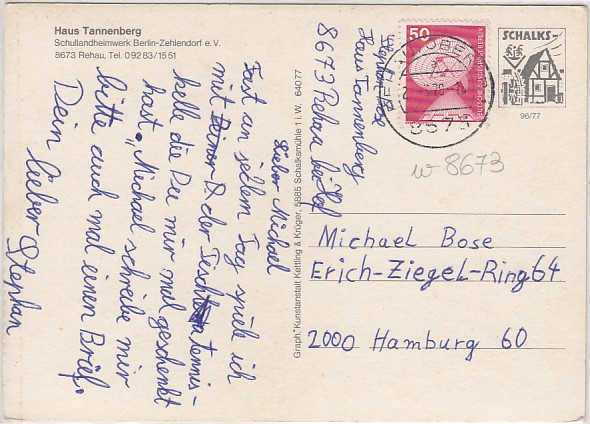 Haus Tannenberg
Schullandheimwerk Berlin-Zehlendorf e. V.
8673 Rehau, Tel. 0 92 83 / 15 51
Lieber Michael
Fast an jedem Tag spiele ich
mit Deiner D. der Tischtennis-
kelle die Du mir mal geschenkt
hast. Michael schreibe mir
bitte auch mal einen Brief.
Dein lieber Stephan
Graph. Kunstanstalt Kettling & Krüger, 5885 Schalksmühle 1 i. W. 64077
Stephan Bose
Haus Tannenberg
8673 Rehau bei Hof
50
DEUTSCHE BUNDESPOST BERLIN
8673
SCHALKS-
96/77
W 8673
Michael Bose
Erich-Ziegel-Ring 64
2000 Hamburg 60